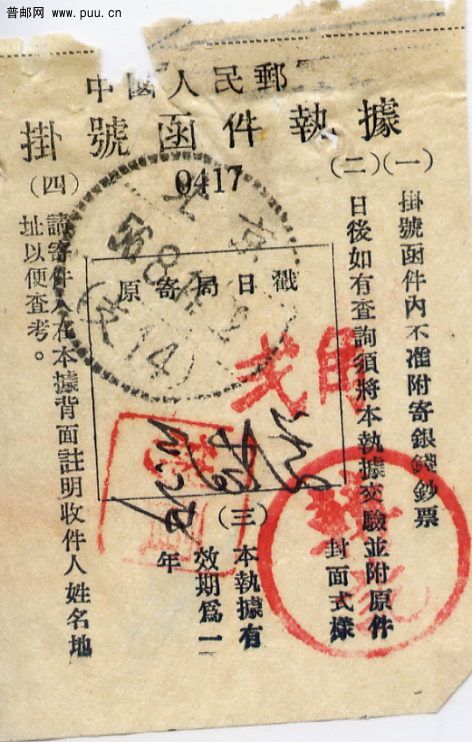 普邮网 www.puu.cn
中國人民郵
掛號函件執據
0417
(一)
掛號函件內不准附寄銀錢鈔票
(二)
日後如有查詢須將本執據交驗並附原件
封面式樣
原寄局日戳
北京
56.8.
(三)
本執據有
效期爲一
年
(四)
請寄件人在本據背面註明收件人姓名地
址以便查考。